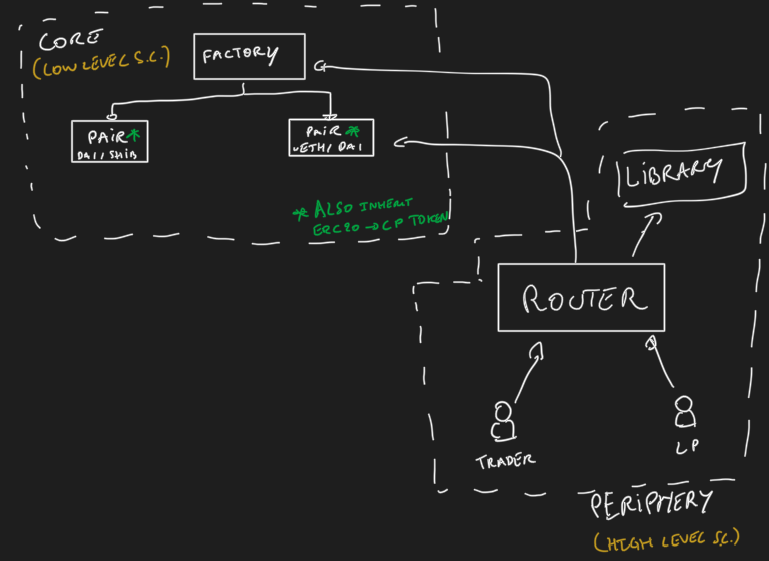 CORE
(LOW LEVEL S.C.)
FACTORY
PAIR*
DAI/SHIB
PAIR*
WETH/DAI
* ALSO INHERIT
ERC20 → LP TOKEN
LIBRARY
ROUTER
TRADER
LP
PERIPHERY
(HIGH LEVEL S.C.)